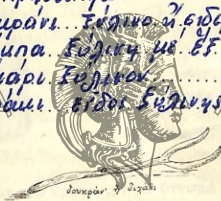 κράνι.. Ξύλινο ἤ εἶδο
μπα.. Ξύλινη μέ ἐξ.
άρι Ξύλινον.......
άκι.. εἶδος ξυλίνης
δουκράν' ἤ διχάλι